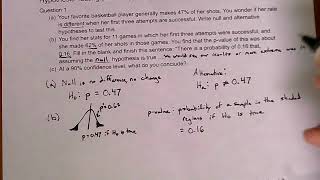 Question 1
(a) Your favorite basketball player generally makes 47% of her shots. You wonder if her rate
is different when her first three attempts are successful. Write null and alternative
hypotheses to test this.
(b) You find her stats for 11 games in which her first three attempts were successful, and
she made 62% of her shots in those games. You find that the p-value of this was about
0.16. Fill in the blank and finish this sentence: "There is a probability of 0.16 that,
assuming the null hypothesis is true we would see our sample or more extreme
(c) At a 90% confidence level, what do you conclude?
(a) Null is no difference, no change
Alternative:
H₀: p = 0.47
Hₐ: p ≠ 0.47
(b)
p̂=0.62
p-value: probability of a sample in the shaded
regions if H₀ is true
p=0.47 if H₀ is true
= 0.16